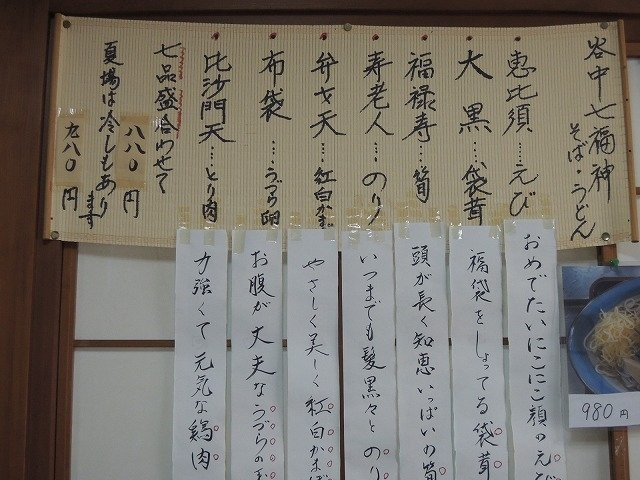 谷中七福神
そば・うどん
恵比須……えび
大黒…袋茸
福禄寿…筍
寿老人…のり
弁才天…紅白かま
布袋……うづら卵
比沙門天…とり肉
七品盛合わせて
八八〇円
夏場は冷しもあります
九八〇円
おめでたいにこにこ顔のえび
福袋をしょってる袋茸
頭が長く知恵いっぱいの筍
いつまでも髪黒々とのり
やさしく美しく紅白かまぼ
お腹が丈夫なうづらの玉
力強くて元気な鶏肉
980円